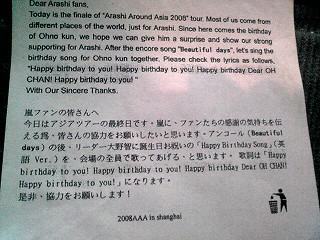 Dear Arashi fans,
Today is the finale of "Arashi Around Asia 2008" tour. Most of us come from
different places of the world, just for Arashi. Since here comes the birthday
of Ohno kun, we hope we can give him a surprise and show our strong
supporting for Arashi. After the encore song "Beautiful days", let's sing the
birthday song for Ohno kun together. Please check the lyrics as follows,
"Happy birthday to you! Happy birthday to you! Happy birthday Dear OH
CHAN! Happy birthday to you! "
With Our Sincere Thanks.
嵐ファンの皆さんへ
今日はアジアツアーの最終日です。嵐に、ファンたちの感謝の気持ちを伝
える爲、皆さんの協力をお願いしたいと思います。アンコール(Beautiful
days)の後、リーダー大野智に誕生日お祝いの「Happy Birthday Song」(英
語 Ver.)を、会場の全員で歌ってあげる、と思います。 歌詞は「Happy
birthday to you! Happy birthday to you! Happy birthday Dear OH CHAN!
Happy birthday to you!」になります。
是非、協力をお願いします!
2008AAA in shanghai